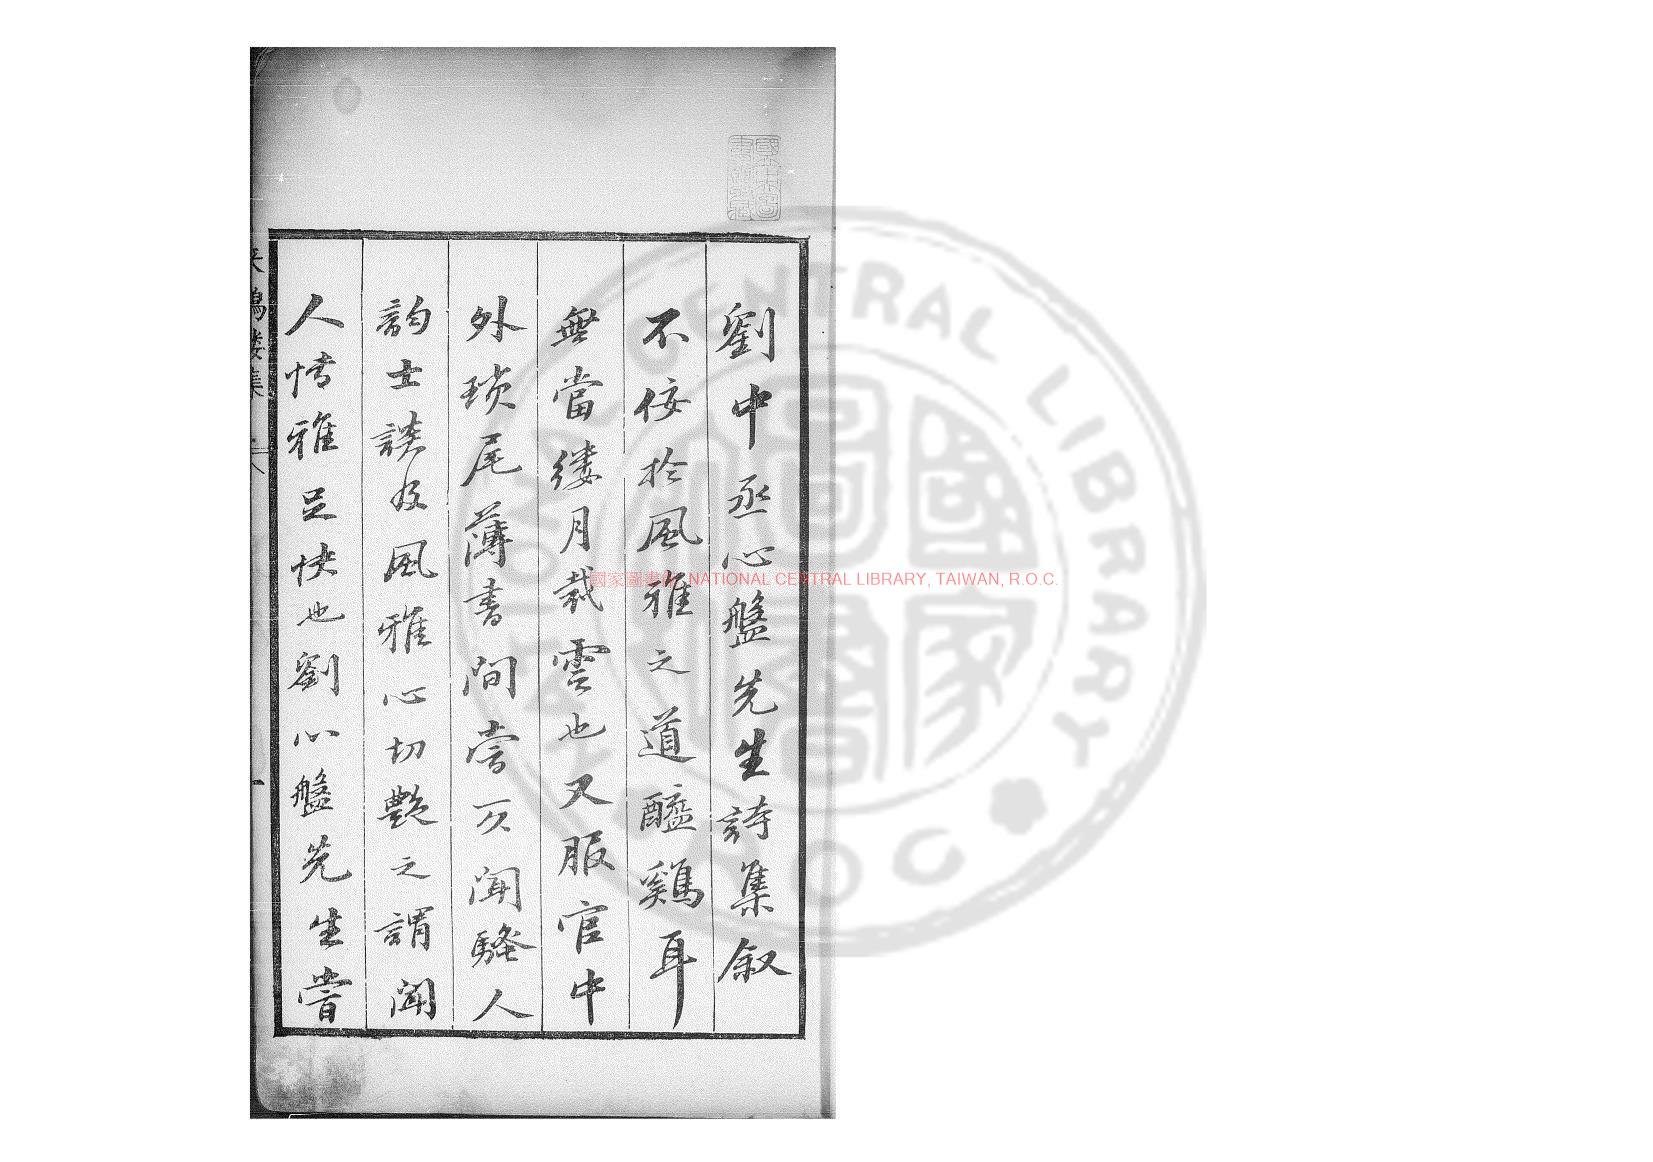 劉中丞心盤先生詩集叙
不佞於風雅之道醯鷄耳
無當縷月裁雲也又服官中
外瑣尾薄書間嘗一又聞騷人
韵士談及風雅心切艷之謂聞
人情雅足快也劉心盤先生嘗
鴻
集
一
國家圖書館 NATIONAL CENTRAL LIBRARY, TAIWAN, R.O.C.
NATIONAL CENTRAL LIBRARY
R.O.C.
國家圖書